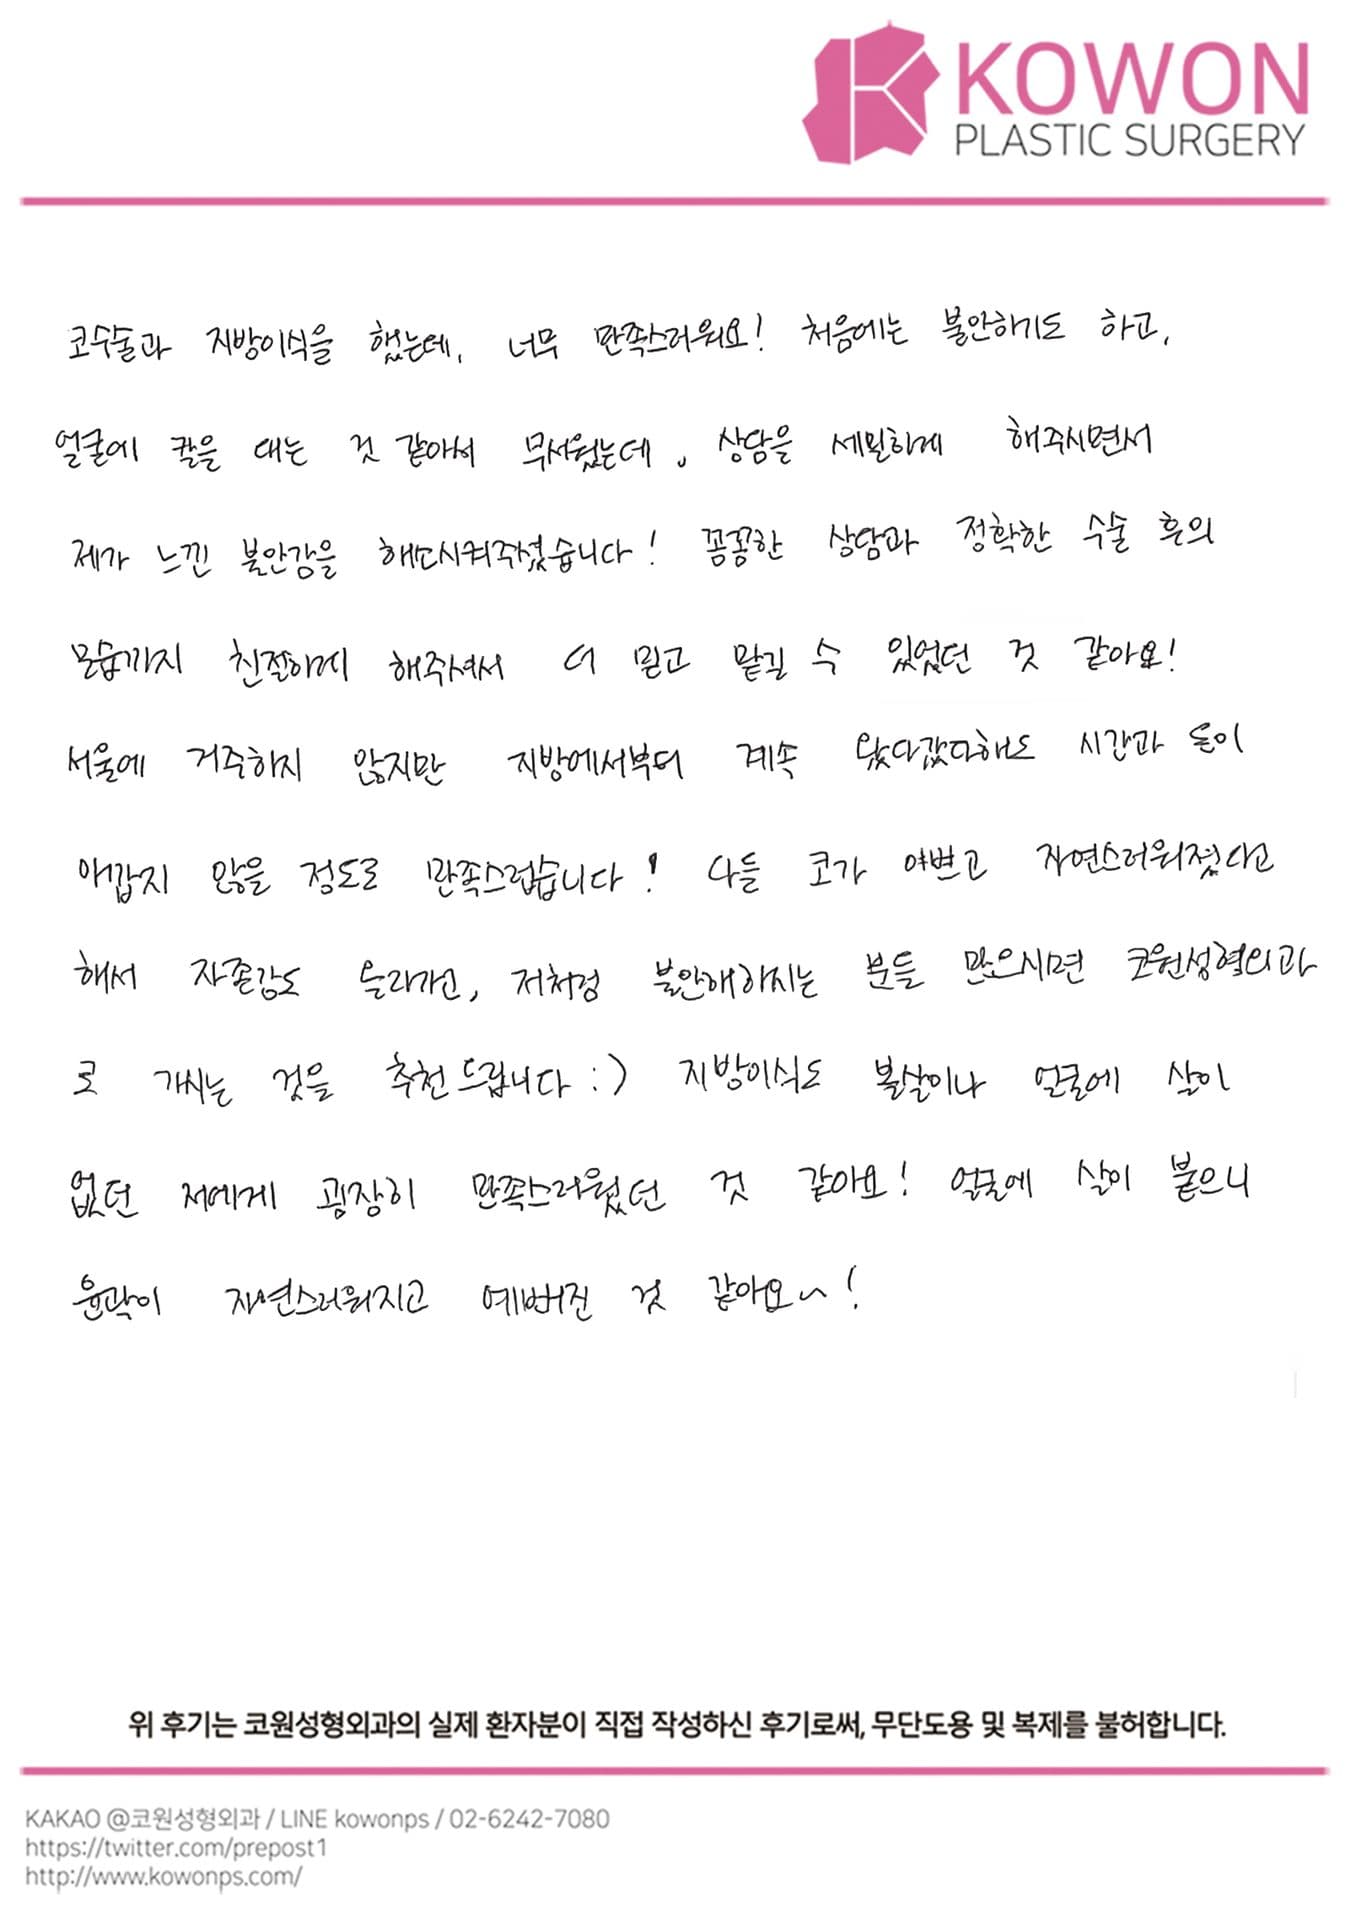 KOWON
PLASTIC SURGERY
코수술과 지방이식을 했는데, 너무 만족스러워요! 처음에는 불안하기도 하고,
얼굴에 칼을 대는 것 같아서 무서웠는데, 상담을 세밀하게 해주시면서
제가 느낀 불안감을 해소시켜주셨습니다! 꼼꼼한 상담과 정확한 수술 후의
모습까지 친절하게 해주셔서 더 믿고 맡길 수 있었던 것 같아요!
서울에 거주하지 않지만 지방에서부터 계속 왔다갔다해도 시간과 돈이
아깝지 않을 정도로 만족스럽습니다! 다들 코가 예쁘고 자연스러워졌다고
해서 자존감도 올라가고, 저처럼 불안해하시는 분들 많으시면 코원성형외과
로 가시는 것을 추천드립니다 :) 지방이식도 볼살이나 얼굴에 살이
없던 저에게 굉장히 만족스러웠던 것 같아요! 얼굴에 살이 붙으니
윤곽이 자연스러워지고 예뻐진 것 같아요~!
위 후기는 코원성형외과의 실제 환자분이 직접 작성하신 후기로써, 무단도용 및 복제를 불허합니다.
KAKAO @코원성형외과 / LINE kowonps / 02-6242-7080
https://twitter.com/prepost1
http://www.kowonps.com/